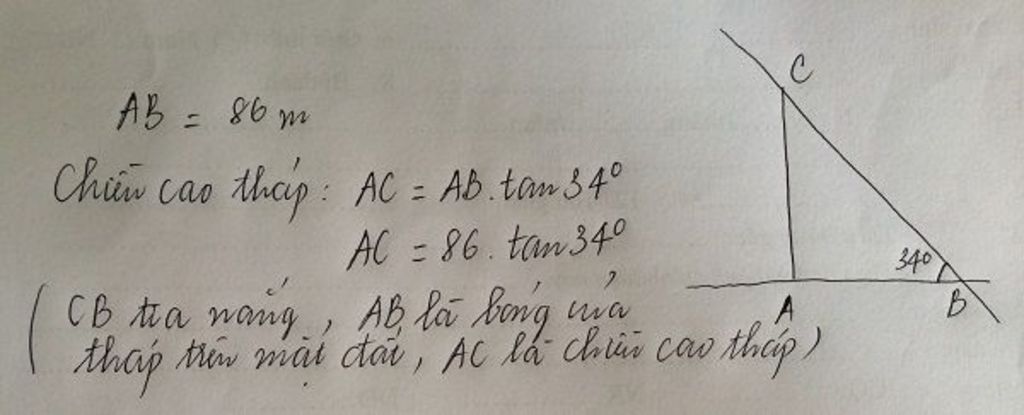 AB = 86 m
Chiều cao tháp: AC = AB . tan 34°
AC = 86 . tan 34°
( CB tia nắng, AB là bóng của
tháp trên mặt đất, AC là chiều cao tháp )
C
34°
A
B